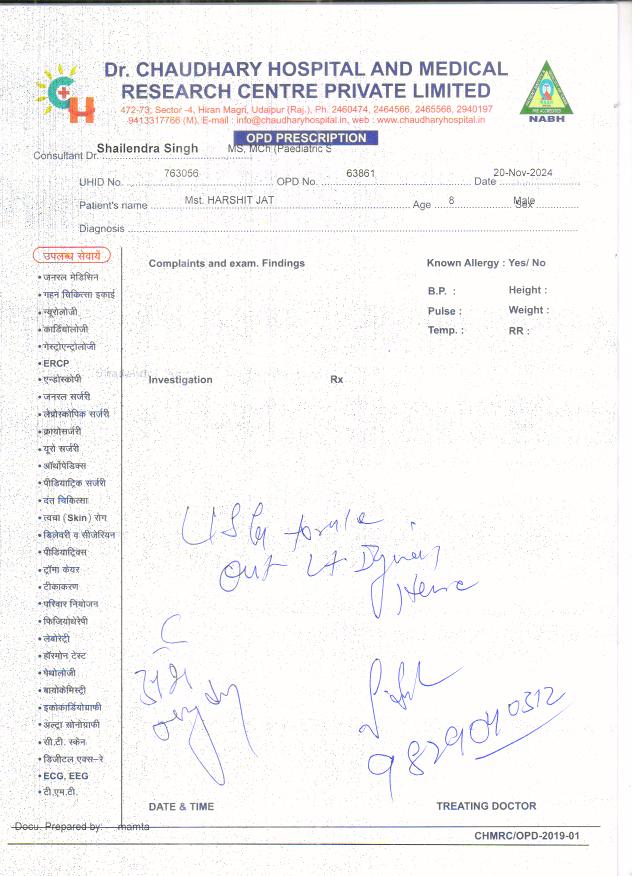 Dr. CHAUDHARY HOSPITAL AND MEDICAL
RESEARCH CENTRE PRIVATE LIMITED
472-73, Sector -4, Hiran Magri, Udaipur (Raj.), Ph. 2460474, 2464566, 2465566, 2940197
9413317766 (M), E-mail : info@chaudharyhospital.in, web : www.chaudharyhospital.in
NABH
OPD PRESCRIPTION
Consultant Dr. Shailendra Singh MS, MCh (Paediatric S
UHID No. 763056 OPD No. 63861 Date 20-Nov-2024
Patient's name Mst. HARSHIT JAT Age 8 Sex Male
Diagnosis
उपलब्ध सेवायें
Complaints and exam. Findings
Known Allergy : Yes/ No
B.P. : Height :
Pulse : Weight :
Temp. : RR :
Investigation Rx
• जनरल मेडिसिन
• गहन चिकित्सा इकाई
• न्यूरोलॉजी
• कार्डियोलॉजी
• गेस्ट्रोएन्ट्रोलॉजी
• ERCP
• एन्डोस्कोपी
• जनरल सर्जरी
• लेप्रोस्कोपिक सर्जरी
• क्रायोसर्जरी
• यूरो सर्जरी
• ऑर्थोपेडिक्स
• पीडियाट्रिक सर्जरी
• दंत चिकित्सा
• त्वचा (Skin) रोग
• डिलेवरी व सीजेरियन
• पीडियाट्रिक्स
• ट्रॉमा केयर
• टीकाकरण
• परिवार नियोजन
• फिजियोथेरेपी
• लेबोरेट्री
• हॉरमोन टेस्ट
• पेथोलॉजी
• बायोकेमिस्ट्री
• इकोकार्डियोग्राफी
• अल्ट्रा सोनोग्राफी
• सी.टी. स्केन
• डिजीटल एक्स-रे
• ECG, EEG
• टी.एम.टी.
USG to rule
out Lt Inguinal
Hernia
9829040312
DATE & TIME
TREATING DOCTOR
Docu. Prepared by: mamta
CHMRC/OPD-2019-01